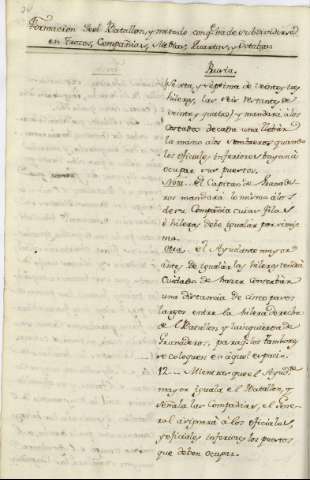 Formacion del Batallon, y metodo con q.e ha de subdividirse
en Trozos, Compañias, Mitades, Quartas, y Octabas
Rusia.
Sexta, y septima de veinte y tres
hileras, las seis restantes de
veinte y quatro) y mandara a los
costados de cada una llebar
la mano a los sombreros quando
los oficiales inferiores bayan a
ocupar sus puestos.
Nota. El Capitan de Granade-
ros mandará lo mismo a los
de su Compañia cuias filas
è hileras debe igualar por si mis-
ma.
Otra. el Ayudante mayor
antes de igualar las hileras tendrá
Cuidado de hacer conserbar
una distancia de cinco pasos
largos entre la hilera derecha
de el Batallon y la izquierda de
Granaderos, para q.e los tambores
se coloquen en aquel espacio.
12... Mientras que el Ayud.te
mayor iguala el Batallon, y
señala las Compañias, el Gene-
ral asignará à los oficiales,
y oficiales inferiores los puestos
que deben ocupar.